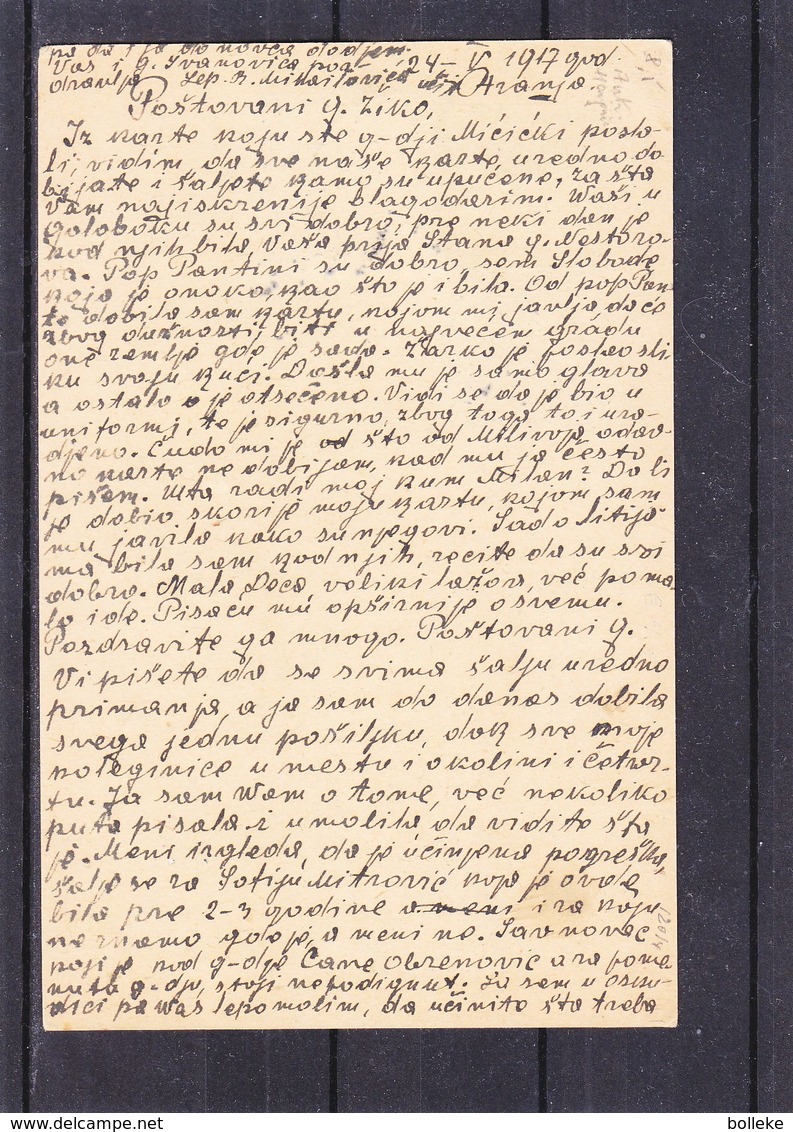 pa da i ja do novca dodjem.
Vas i g. Ivanovića poz-
dravlja Lep. R. Mihailovića uči
24-V 1917 god.
Aranja
Poštovani g. Žiko,
Iz karte koju ste g-dji Mićićki posla-
li, vidim da sve naše karte, uredno do-
bijate i šaljete kamo su upućene, za šta
Vam najiskrenije blagodarim. Vaši u
Golobotku su svi dobro, pre neki dan je
kod njih bila Vaša prija Stana g. Nestoro-
va. Pop Pantini su dobro, sem Slobode
koja je onako, kao što je i bila. Od pop Pan-
te dobila sam kartu, kojom mi javlja da će
zbog dužnosti, biti u najvećem gradu
one zemlje gde je sada. Žarko je poslao sli-
ku svoju kući. Došla mu je samo glava
a ostalo je otsečeno. Vidi se da je bio u
uniformi, te je sigurno, zbog toga to i ura-
djeno. Čudo mi je što od Milivoja odav-
no karte ne dobijam, kad mu ja često
pišem. Šta radi moj kum Milan? Da li
je dobio skorije moju kartu, kojom sam
mu javila kako su njegovi. Sad o Litija-
ma bila sam kod njih, recite da su svi
dobro. Mala Deca veliki lažov, već poma-
lo ide. Pisaću mu opširnije o svemu.
Pozdravite ga mnogo. Poštovani g.
Vi pišete da se svima šalju uredno
primanja, a ja sam do danas dobila
svega jednu pošiljku, dok sve moje
koleginice u mestu i okolini i četvr-
tu. Ja sam Vam o tome, već nekoliko
puta pisala i umolila da vidite šta
je. Meni izgleda, da je učinjena pogreška,
šalje se za Sofiju Mitrović koja je ovde
bila pre 2-3 godine i za koju
ne znamo gde je, a meni ne. Sav novac
koji je kod g-dje Cane Obrenović a za pome-
nutu g-dju, stoji nepodignut. Ja sam u osku-
dici pa Vas lepo molim, da učinite šta treba
bolleke